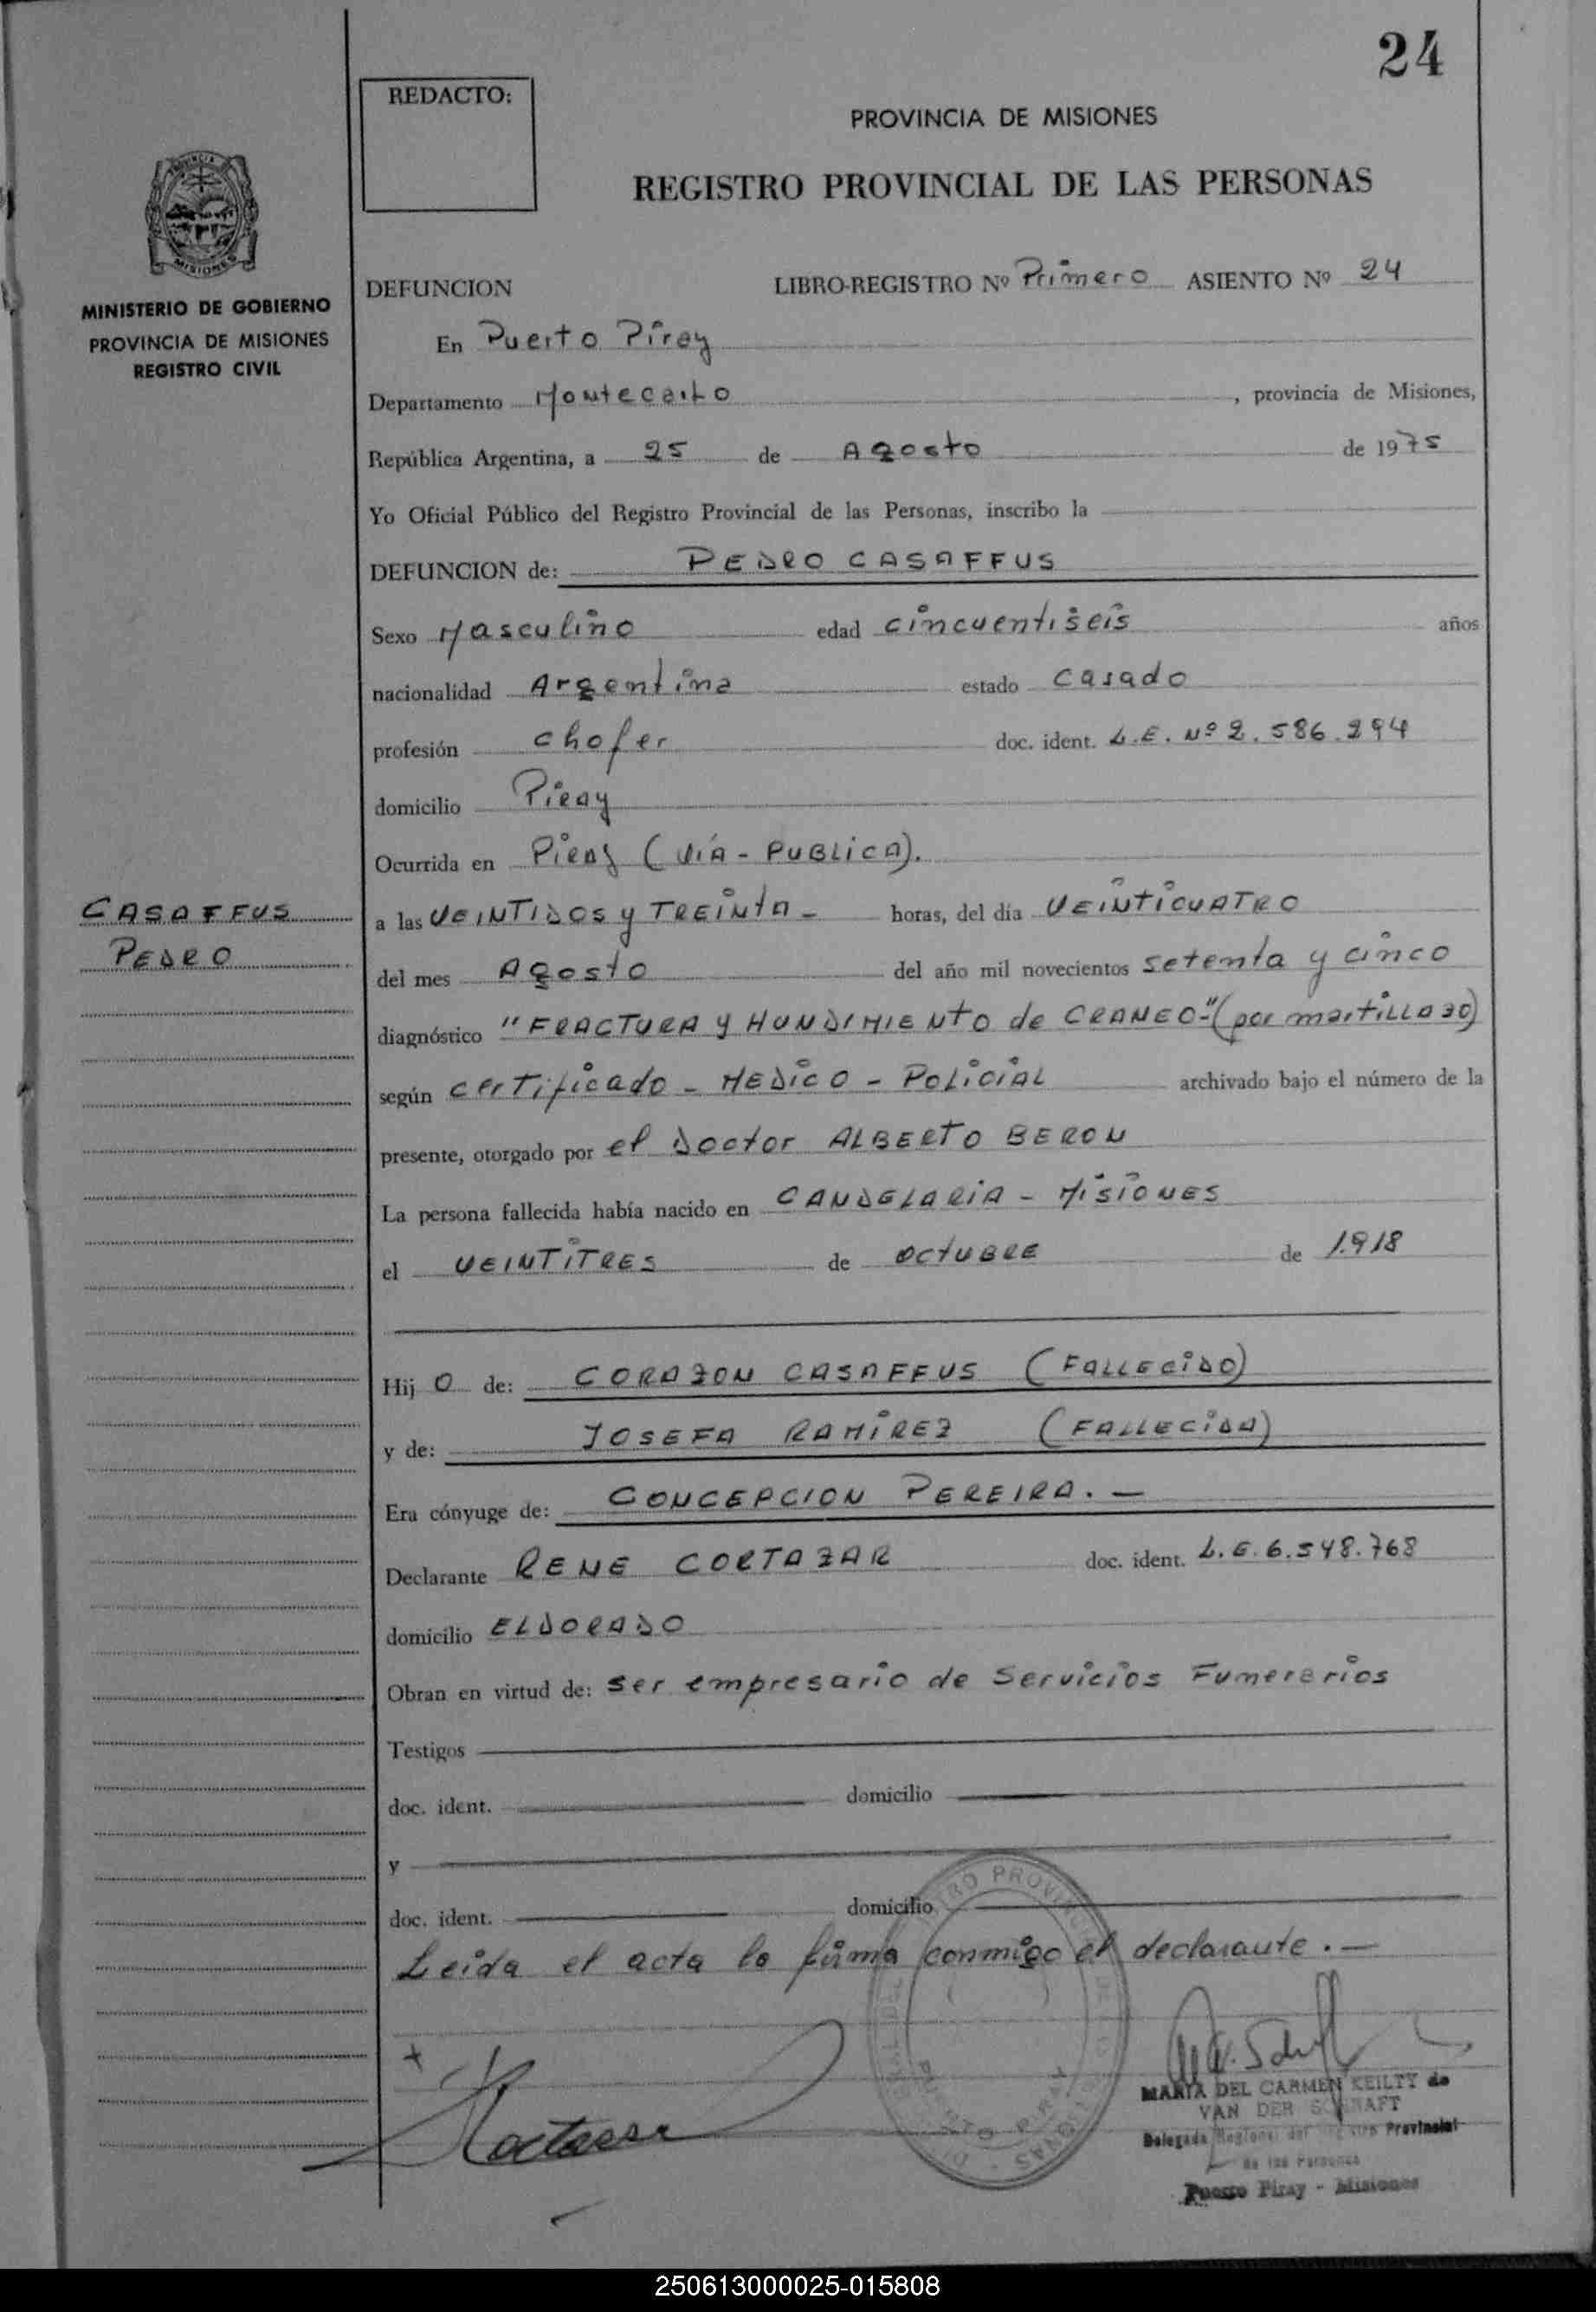 24
REDACTO:
PROVINCIA DE MISIONES
REGISTRO PROVINCIAL DE LAS PERSONAS
MISIONES
MINISTERIO DE GOBIERNO
PROVINCIA DE MISIONES
REGISTRO CIVIL
DEFUNCION LIBRO-REGISTRO Nº Primero ASIENTO Nº 24
En Puerto Piray
Departamento Montecarlo, provincia de Misiones,
República Argentina, a 25 de Agosto de 1975
Yo Oficial Público del Registro Provincial de las Personas, inscribo la
DEFUNCION de: PEDRO CASAFFUS
Sexo Masculino edad cincuentiseis años
nacionalidad Argentina estado casado
profesión chofer doc. ident. L.E. Nº 2.586.294
domicilio Piray
Ocurrida en Piray (VIA - PUBLICA).
CASAFFUS
PEDRO
a las VEINTIDOS y TREINTA - horas, del día VEINTICUATRO
del mes Agosto del año mil novecientos setenta y cinco
diagnóstico "FRACTURA y HUNDIMIENTO de CRANEO-" (por martillazo)
según certificado - MEDICO - POLICIAL archivado bajo el número de la
presente, otorgado por el Doctor ALBERTO BERON
La persona fallecida había nacido en CANDELARIA - MISIONES
el VEINTITRES de OCTUBRE de 1918
Hijo de: CORAZON CASAFFUS (FALLECIDO)
y de: JOSEFA RAMIREZ (FALLECIDA)
Era cónyuge de: CONCEPCION PEREIRA. -
Declarante RENE CORTAZAR doc. ident. L.E. 6.548.768
domicilio ELDORADO
Obran en virtud de: ser empresario de Servicios Funerarios
Testigos
doc. ident. domicilio
y
doc. ident. domicilio
Leida el acta la firma conmigo el declarante. -
MARIA DEL CARMEN KEILTY de
VAN DER SCHRAFT
Delegada Regional del Provincial
de las Personas
Puerto Piray - Misiones
250613000025-015808